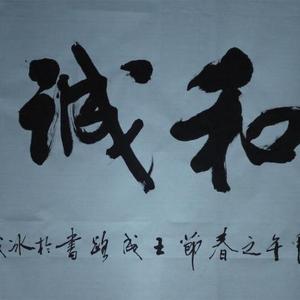 和诚
午之春節王成路書於冰